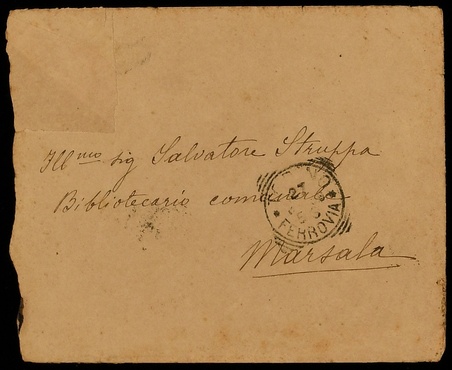 Ill mo sig Salvatore Struppa
Bibliotecario comunale
Marsala
FERROVIA